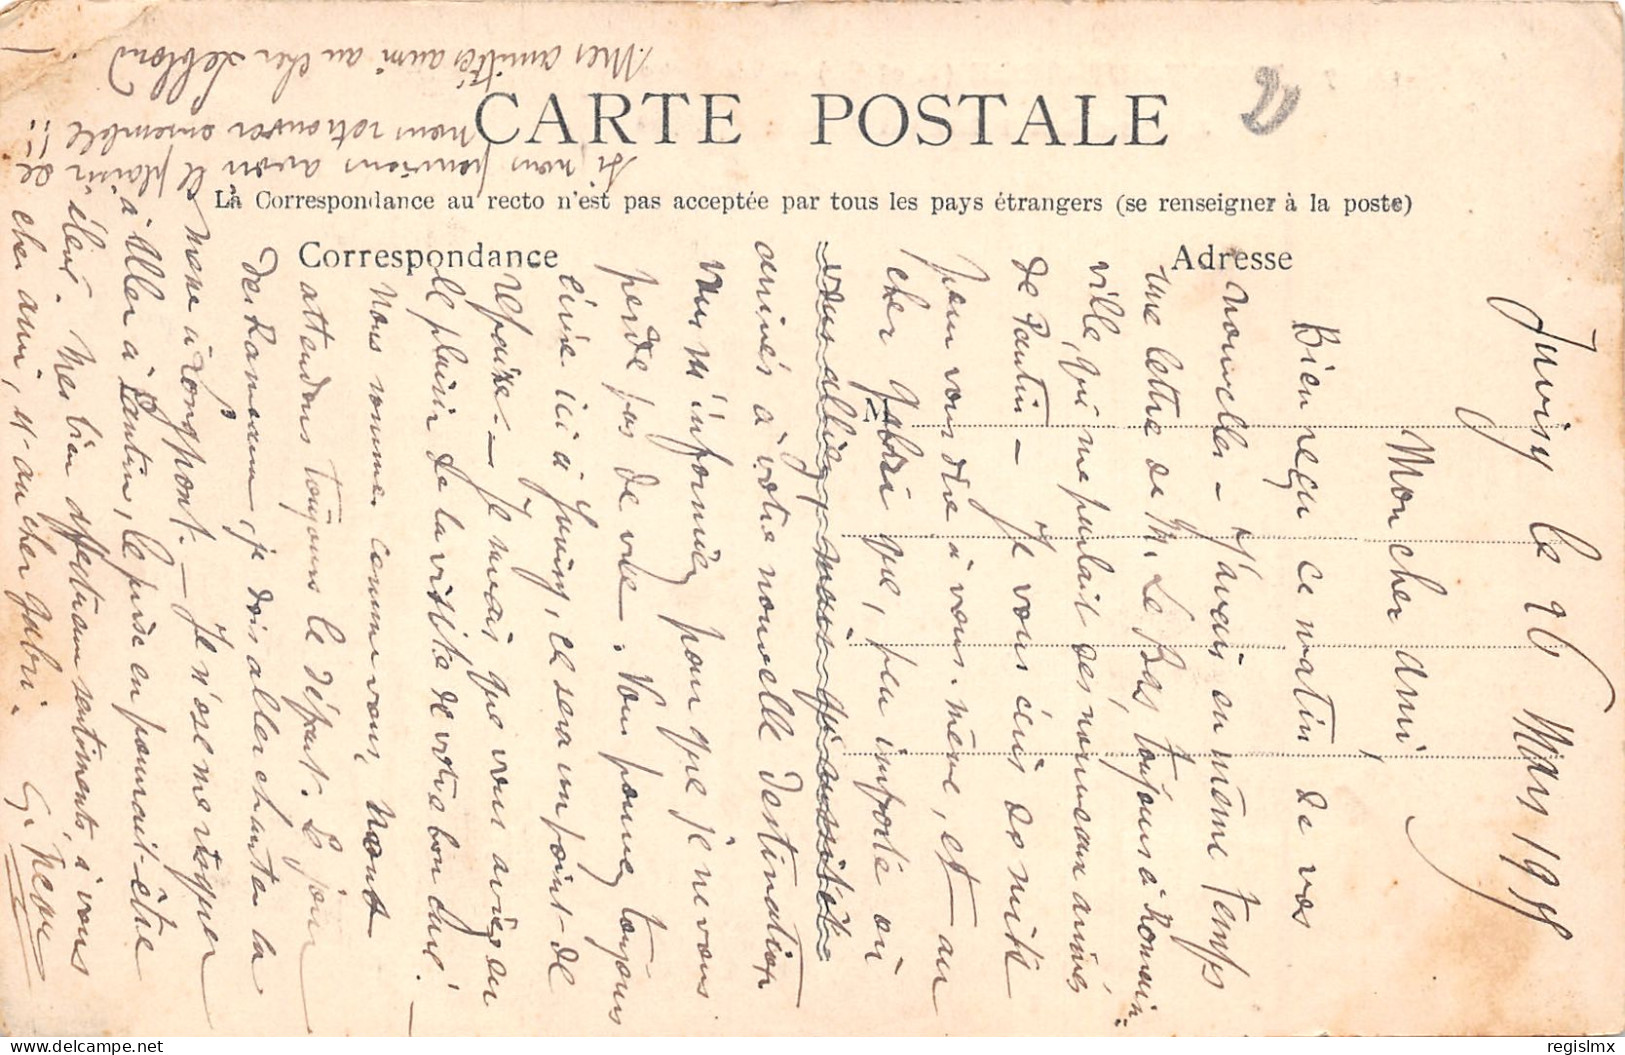 CARTE POSTALE
La Correspondance au recto n'est pas acceptée par tous les pays étrangers (se renseigner à la poste)
Correspondance
Adresse
Juvisy le 26 Mars 1918
Mon cher ami,
Bien reçu ce matin de vos
nouvelles - J'avais en même temps
une lettre de M. Le Bas, toujours à Romain-
ville, qui me parlait des nouveaux arrivés
de Pantin - Je vous écris de suite
pour vous dire à vous-même, et au
cher Gabri que, peu importe où
vous alliez, mais qu'aussitôt
arrivés à votre nouvelle destination
vous m'informiez pour que je ne vous
perde pas de vue. Vous pouvez toujours
écrire ici à Juvisy, ce sera un point de
repaire. - Je savais que vous aviez eu
le plaisir de la visite de votre bon curé. -
Nous sommes comme vous, nous
attendons toujours le départ. Le jour
des Rameaux, je dois aller chanter la
messe à Longpont. - Je n'ose me risquer
à aller à Pantin, le prise en pourrait être
Mes bien affectueux sentiments à vous
cher ami, et au cher Gabri.
si nous pouvions avoir le plaisir de
nous retrouver ensemble !!
Mes amitiés aussi au cher Leblond
regislmx